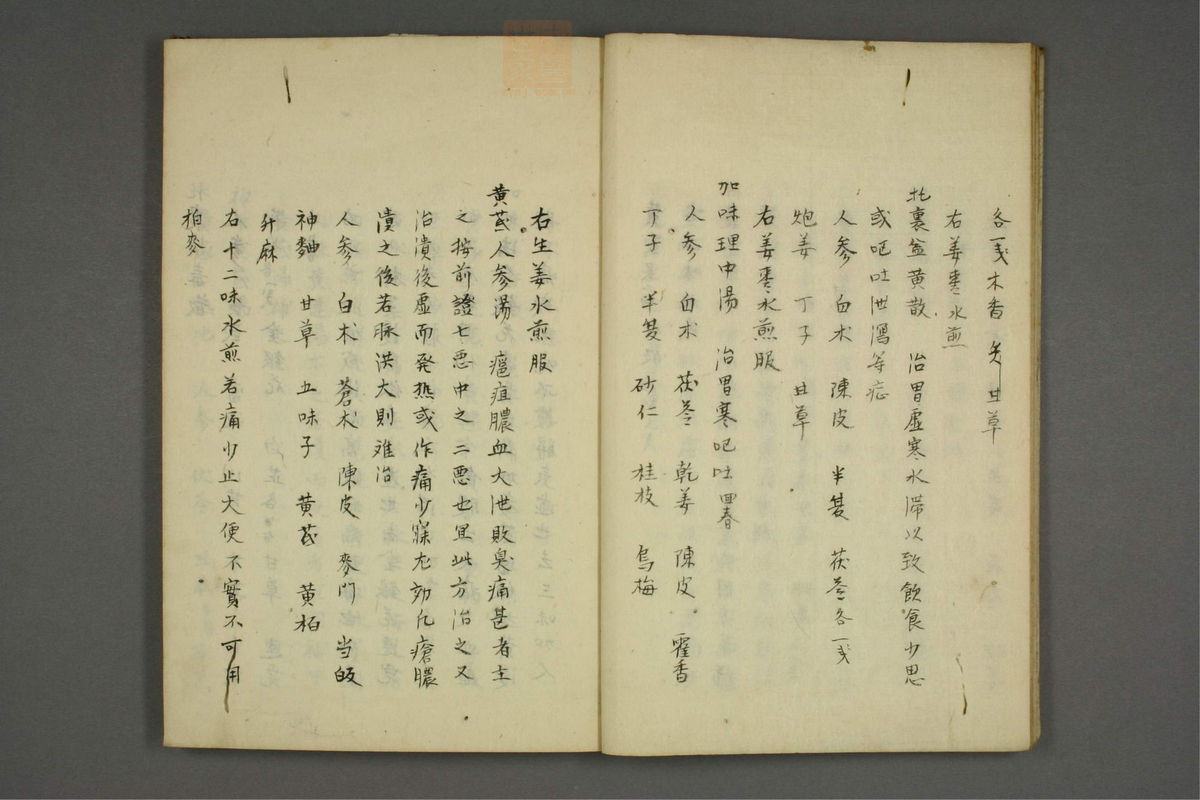 各一戋木香 炙甘草
右姜棗水煎
托裏益黄散 治胃虚寒水滞以致飲食少思
或呕吐泄瀉等症
人参 白术 陳皮 半夏 茯苓各一戋
炮姜 丁子 甘草
右姜棗水煎服
加味理中湯 治胃寒呕吐
人参 白术 茯苓 乾姜 陳皮 霍香
丁子 半夏 砂仁 桂枝 烏梅
右生姜水煎服
黄芪人参湯 癰疽膿血大泄敗臭痛甚者主
之按前證七悪中之二悪也宜此方治之又
治潰後虚而発热或作痛少寐尤効凡瘡膿
潰之後若脉洪大則难治
人参 白木 蒼木 陳皮 麥門 当皈
神麯 甘草 五味子 黄芪 黄柏
升麻
右十二味水煎若痛少止大便不實不可用
柏麥